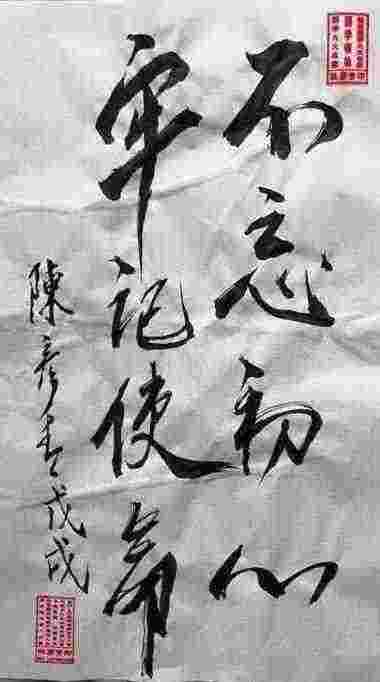 不忘初心
牢记使命
陳彦青戊戌